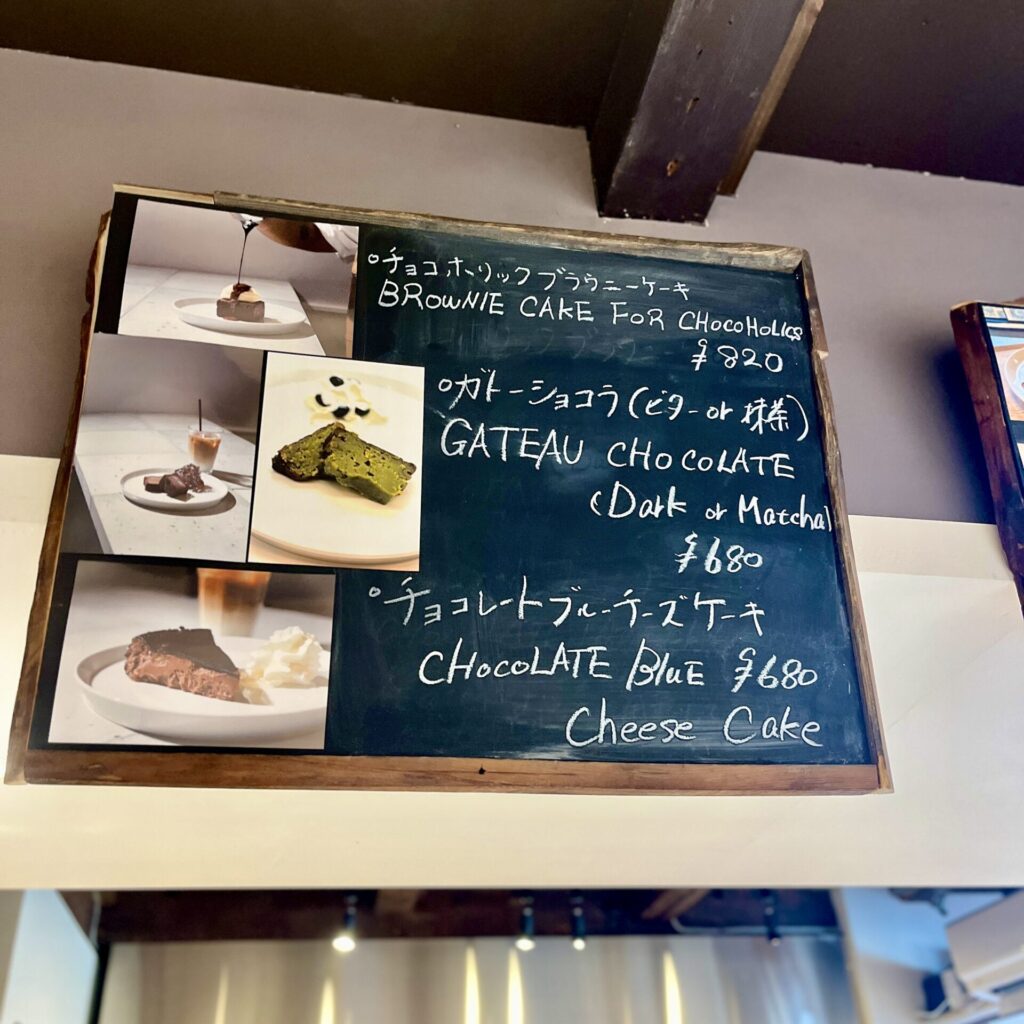 チョコホーリックブラウニーケーキ
BROWNIE CAKE FOR CHOCOHOLICS
¥820
ガトーショコラ(ビター or 抹茶)
GATEAU CHOCOLATE
(Dark or Matcha)
¥680
チョコレートブルーチーズケーキ
CHOCOLATE BLUE ¥680
Cheese Cake